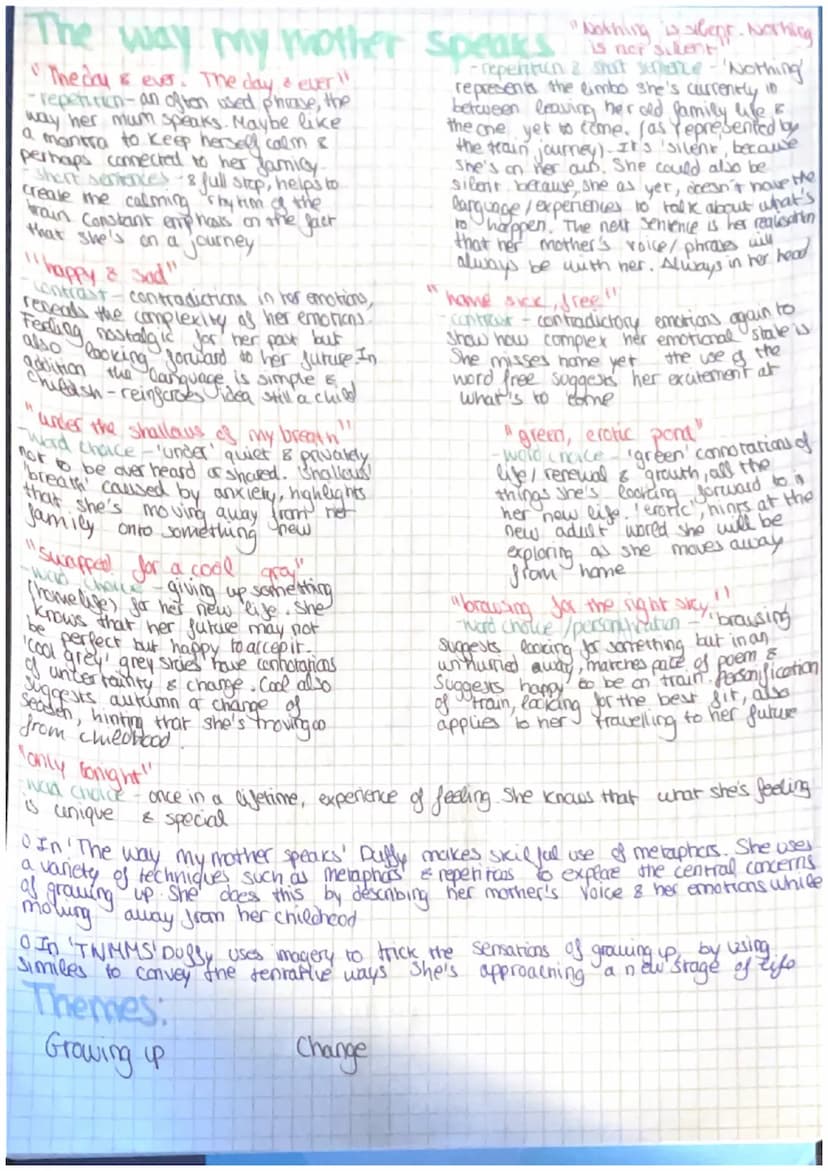 The way my mother speaks
"The day & ever. The day & ever"
- repetition - an often used phrase, the
way her mum speaks. Maybe like
a mantra to keep herself calm &
perhaps connected to her family.
- short sentences - & full stop, helps to
create the calming rhythm of the
train. Constant emphasis on the fact
that she's on a journey
"happy & sad"
- contrast - contradictions in her emotions,
reveals the complexity of her emotions.
Feeling nostalgic for her past but
also looking forward to her future. In
addition the language is simple &
childish - reinforces idea still a child
"under the shallows of my breath"
- Word choice - 'under' quiet & privately
not to be over heard or shared. 'Shallows'
'breath' caused by anxiety, highlights
that she's moving away from her
family onto something new
"swapped for a cool grey"
- word choice - giving up something
(home life) for her new life. She
knows that her future may not
be perfect but happy to accept it.
'cool grey', grey skies have connotations
of uncertainty & change. Cool also
suggests autumn a change of
season, hinting that she's moving on
from childhood.
"only tonight"
- word choice - once in a lifetime, experience of feeling. She knows that what she's feeling
is unique & special
"Nothing is silent. Nothing
is not silent"
- repetition & short sentence - 'Nothing'
represents the limbo she's currently in
between leaving her old family life &
the one yet to come. (as represented by
the train journey). It's 'silent', because
she's on her own. She could also be
silent because, she as yet, doesn't have the
language/experiences to talk about what's
to happen. The next sentence is her realisation
that her mother's voice/phrases will
always be with her. Always in her head
"home sick, free"
- contrast - contradictory emotions again to
show how complex her emotional state is
She misses home yet the use of the
word free suggests her excitement at
what's to come
"green, erotic pond"
- word choice - 'green' connotations of
life/renewal & growth, all the
things she's looking forward to in
her new life. 'erotic', hints at the
new adult world she will be
exploring as she moves away
from home
"browsing for the right sky"
- word choice/personification - 'browsing
suggests looking for something but in an
unhurried away, matches pace of poem &
suggests happy to be on train. Personification
of train, looking for the best fit, also
applies to her travelling to her future
○ In 'The way my mother speaks' Duffy makes skilful use of metaphors. She uses
a variety of techniques such as metaphors & repetitions to explore the central concerns
of growing up. She does this by describing her mother's voice & her emotions while
moving away from her childhood
○ In 'TWMMS' Duffy uses imagery to trick the sensations of growing up, by using
similes to convey the tentative ways she's approaching a new stage of life
Themes:
Growing up Change